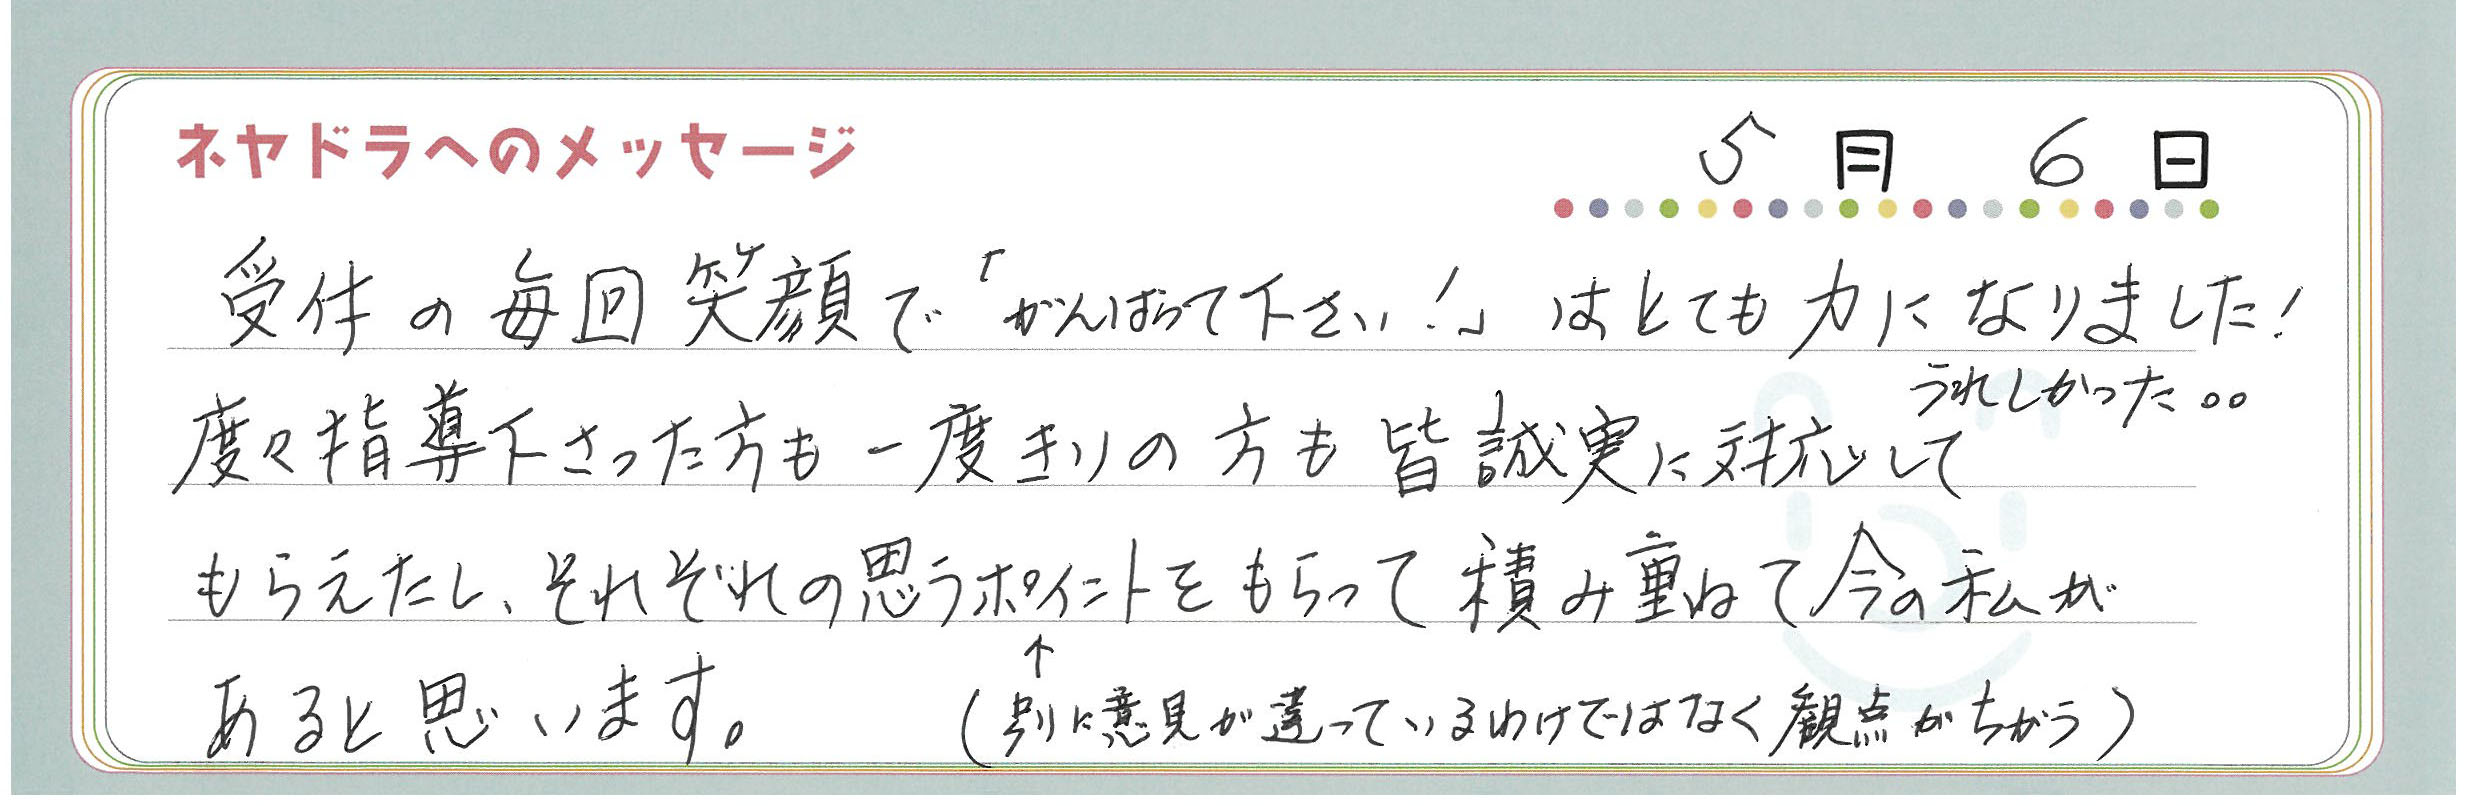 ネヤドラへのメッセージ
5月 6日
受付の毎回笑顔で「がんばって下さい!」はとても力になりました!
うれしかった。。
度々指導下さった方も一度きりの方も皆誠実に対応して
もらえたし、それぞれの思うポイントをもらって積み重ねて今の私が
あると思います。
↑
(別に意見が違っているわけではなく観点がちがう)